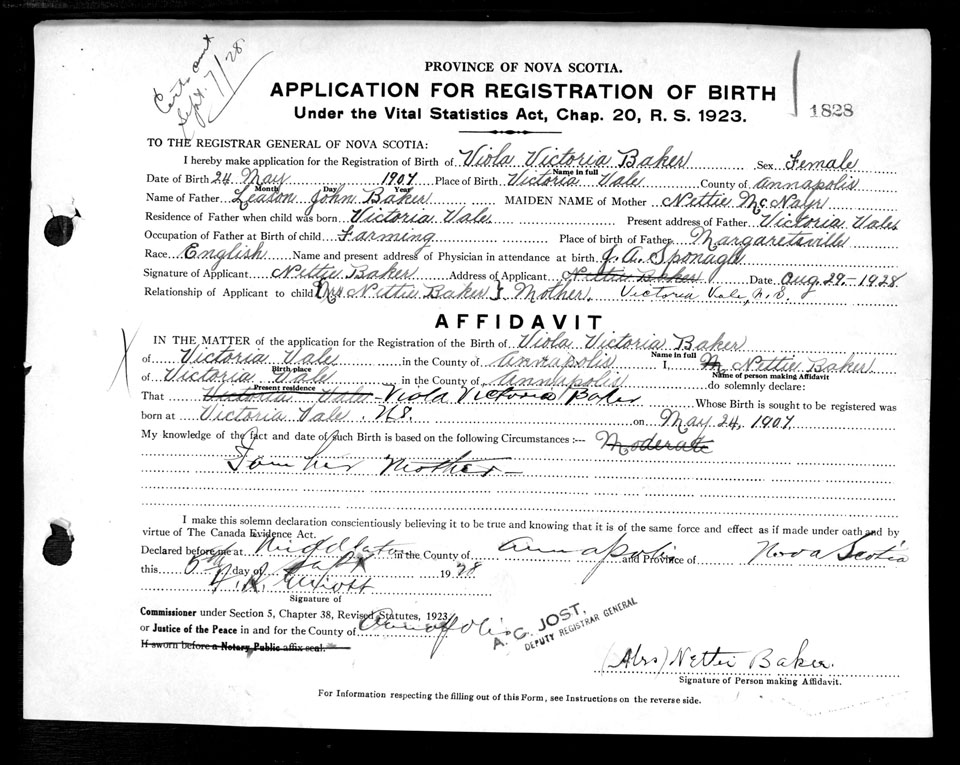 Cert. out
Sept. 7/28
PROVINCE OF NOVA SCOTIA.
APPLICATION FOR REGISTRATION OF BIRTH
Under the Vital Statistics Act, Chap. 20, R. S. 1923.
1828
TO THE REGISTRAR GENERAL OF NOVA SCOTIA:
I hereby make application for the Registration of Birth of Viola Victoria Baker Sex Female
Name in full
Date of Birth 24 May 1907 Place of Birth Victoria Vale County of Annapolis
Month Day Year
Name of Father Leason John Baker MAIDEN NAME of Mother Nettie McNayr
Residence of Father when child was born Victoria Vale Present address of Father Victoria Vale
Occupation of Father at Birth of child Farming Place of birth of Father Margaretsville
Race English Name and present address of Physician in attendance at birth J. A. Sponagle
Signature of Applicant Nettie Baker Address of Applicant Nettie Baker Date Aug. 29-1928
Relationship of Applicant to child Mrs Nettie Baker } Mother. Victoria Vale, N.S.
AFFIDAVIT
IN THE MATTER of the application for the Registration of the Birth of Viola Victoria Baker
Name in full
of Victoria Vale in the County of Annapolis I, M Nettie Baker
Birth place Name of person making Affidavit
of Victoria Vale in the County of Annapolis do solemnly declare:
Present residence
That Victoria Vale - Viola Victoria Baker Whose Birth is sought to be registered was
born at Victoria Vale. N.S. on May 24, 1907
My knowledge of the fact and date of such Birth is based on the following Circumstances :-- Moderate
I am her Mother -
I make this solemn declaration conscientiously believing it to be true and knowing that it is of the same force and effect as if made under oath and by
virtue of The Canada Evidence Act.
Declared before me at Middleton in the County of Annapolis and Province of Nova Scotia
this 5th day of Sept 1928
Signature of
Commissioner under Section 5, Chapter 38, Revised Statutes, 1923
or Justice of the Peace in and for the County of Annapolis
If sworn before a Notary Public affix seal.
A. C. JOST,
DEPUTY REGISTRAR GENERAL
(Mrs) Nettie Baker.
Signature of Person making Affidavit.
For Information respecting the filling out of this Form, see Instructions on the reverse side.